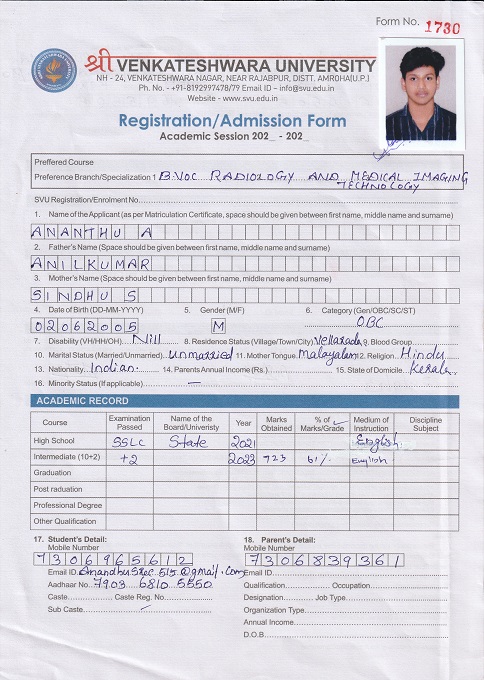 Form No. 1730
श्री VENKATESHWARA UNIVERSITY
NH - 24, VENKATESHWARA NAGAR, NEAR RAJABPUR, DISTT. AMROHA(U.P.)
Ph. No. - +91-8192997478/79 Email ID – info@svu.edu.in
Website - www.svu.edu.in
Registration/Admission Form
Academic Session 202_ - 202_
Preffered Course
Preference Branch/Specialization 1 B.Voc RADIOLOGY AND MEDICAL IMAGING
TECHNOLOGY
SVU Registration/Enrolment No.
1. Name of the Applicant (as per Matriculation Certificate, space should be given between first name, middle name and surname)
ANANTHU A
2. Father's Name (Space should be given between first name, middle name and surname)
ANILKUMAR
3. Mother's Name (Space should be given between first name, middle name and surname)
SINDHU S
4. Date of Birth (DD-MM-YYYY) 5. Gender (M/F) 6. Category (Gen/OBC/SC/ST)
02062005 M OBC
7. Disability (VH/HH/OH) Nill 8. Residence Status (Village/Town/City) Vellarada 9. Blood Group
10. Marital Status (Married/Unmarried) unmarried 11. Mother Tongue Malayalam 12. Religion Hindu
13. Nationality Indian. 14. Parents Annual Income (Rs.) 15. State of Domicile Kerala
16. Minority Status (If applicable) —
ACADEMIC RECORD
Course Examination Passed Name of the Board/Univeristy Year Marks Obtained % of Marks/Grade Medium of Instruction Discipline Subject
High School SSLC State 2021 English
Intermediate (10+2) +2 2023 723 61% English
Graduation
Post raduation
Professional Degree
Other Qualification
17. Student's Detail: 18. Parent's Detail:
Mobile Number Mobile Number
7306965612 7306839361
Email ID @gmail.com Email ID
Aadhar No. 7903 6810 5550 Qualification Occupation
Caste Caste Reg. No. Designation Job Type
Sub Caste Organization Type
Annual Income
D.O.B